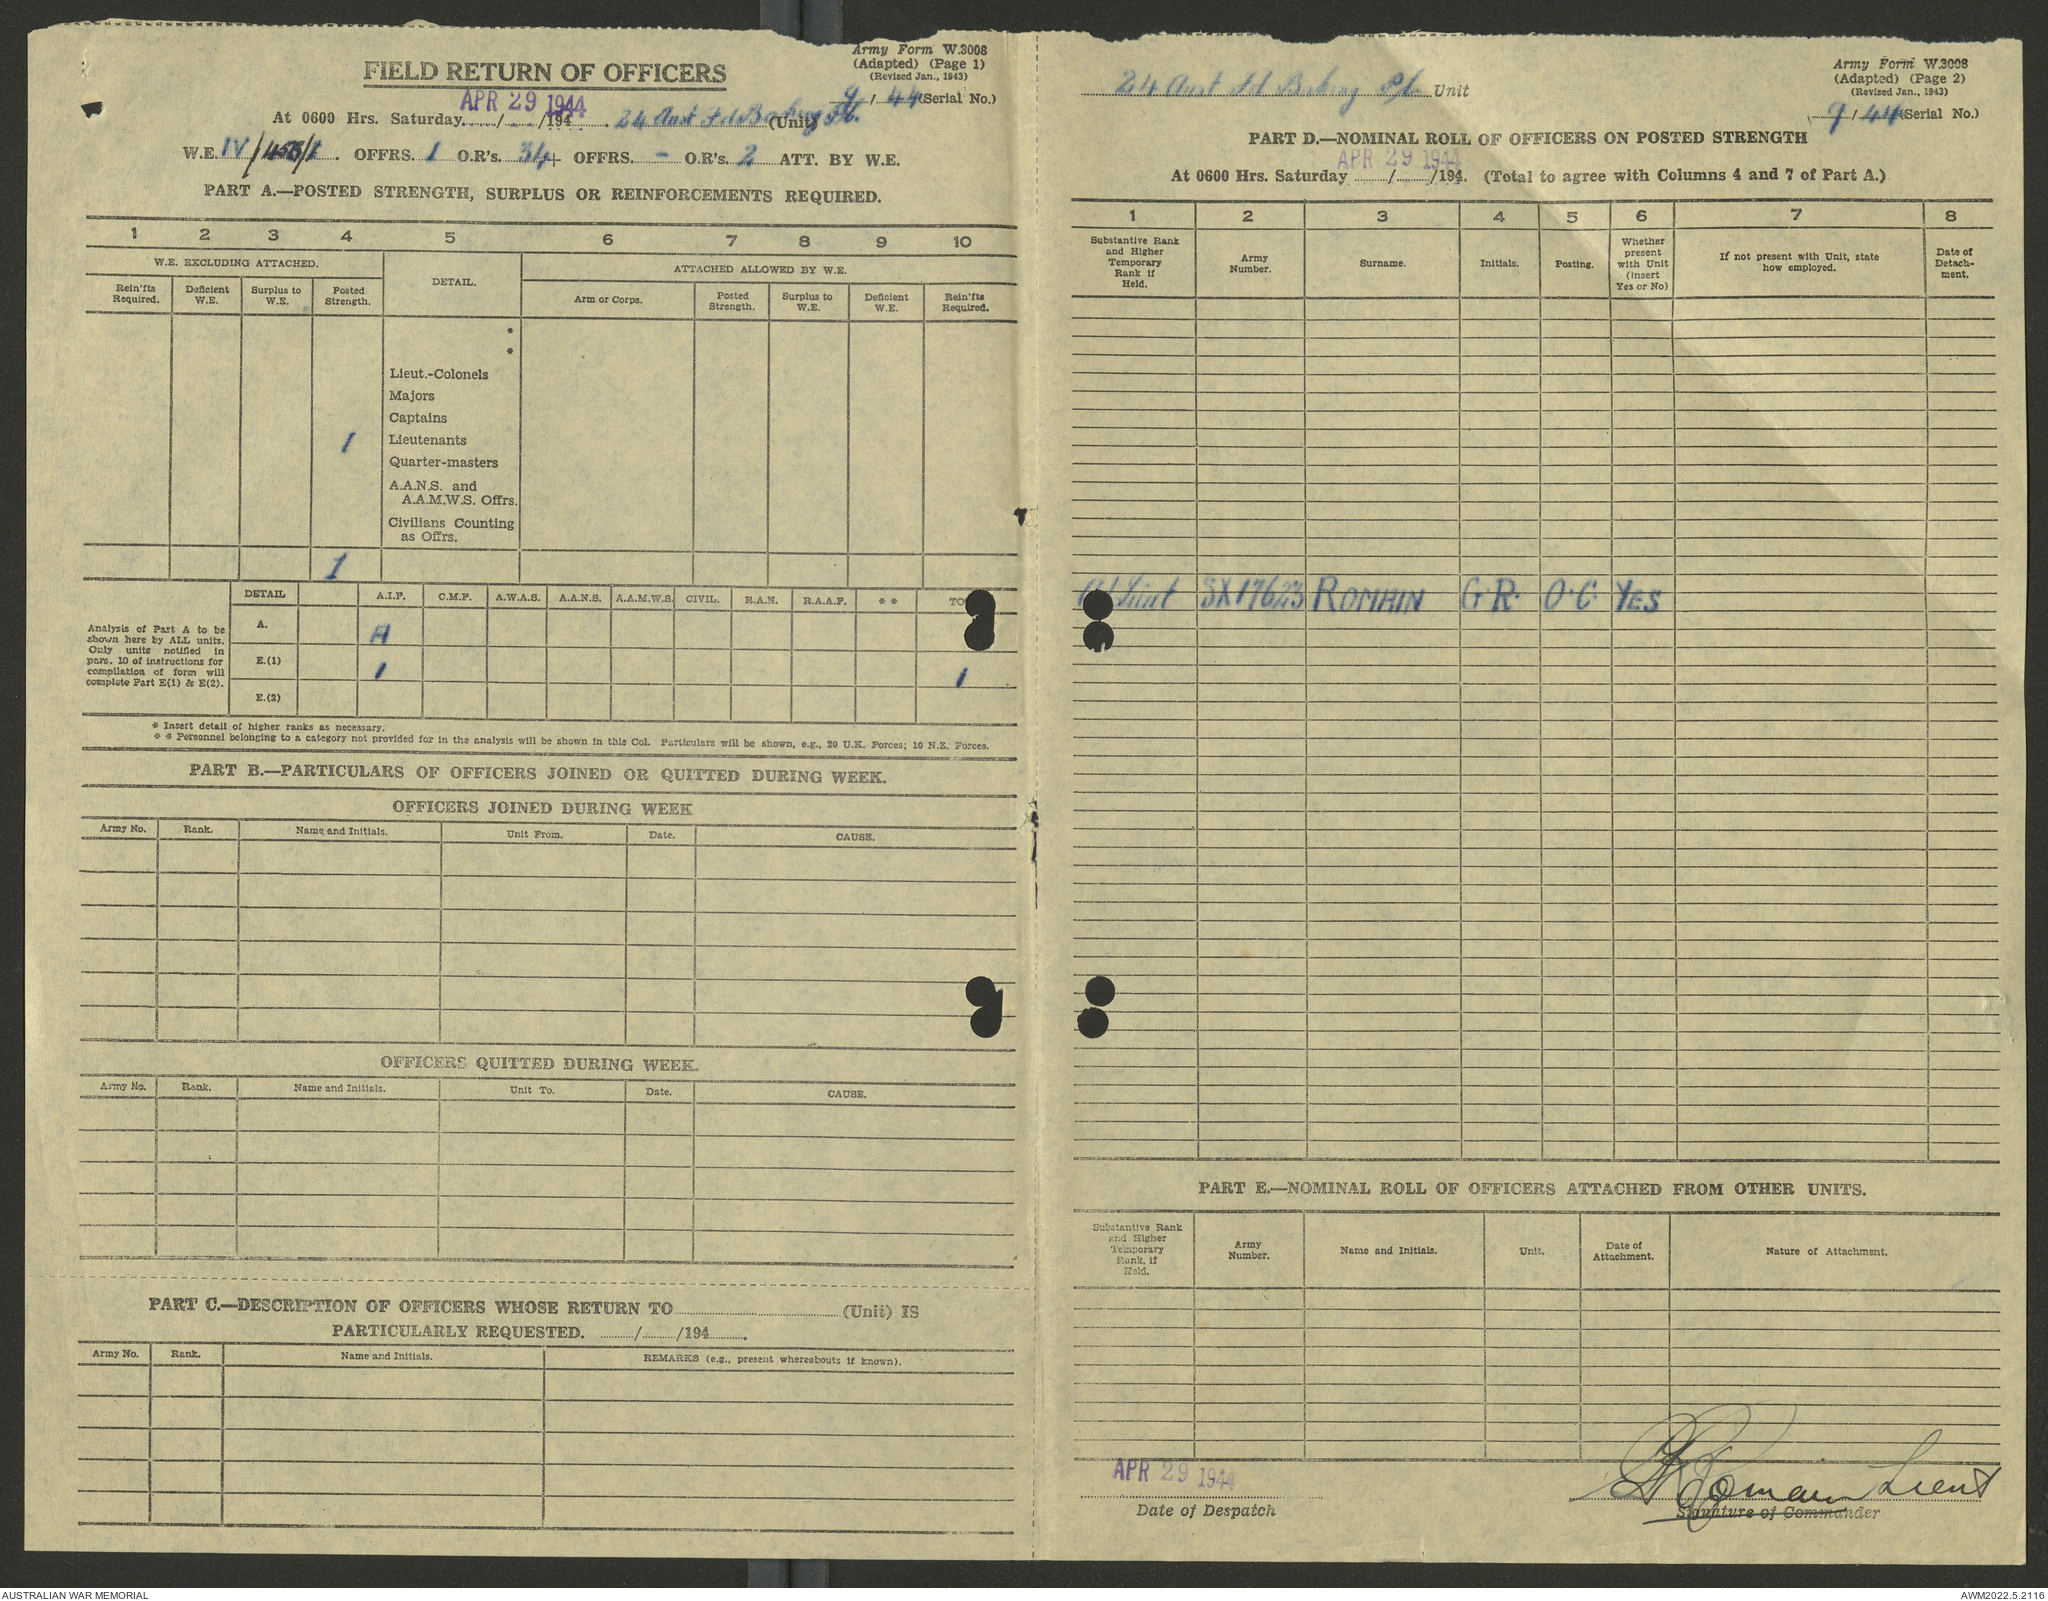 Army Form W.3008
(Adapted) (Page 1)
(Revised Jan., 1943)
FIELD RETURN OF OFFICERS
9 / 44 (Serial No.)
APR 29 1944
At 0600 Hrs. Saturday ....../....../194 24 Aust Fd (Unit)
W.E. IV/453/1. OFFRS. 1 O.R's. 34 + OFFRS. - O.R's. 2 ATT. BY W.E.
PART A.—POSTED STRENGTH, SURPLUS OR REINFORCEMENTS REQUIRED.
1 2 3 4 5 6 7 8 9 10
W.E. EXCLUDING ATTACHED.
DETAIL.
ATTACHED ALLOWED BY W.E.
Rein'fts Required.
Deficient W.E.
Surplus to W.E.
Posted Strength.
Arm or Corps.
Posted Strength.
Surplus to W.E.
Deficient W.E.
Rein'fts Required.
*
*
Lieut.-Colonels
Majors
Captains
1 Lieutenants
Quarter-masters
A.A.N.S. and
A.A.M.W.S. Offrs.
Civilians Counting
as Offrs.
1
DETAIL A.I.F. C.M.F. A.W.A.S. A.A.N.S. A.A.M.W.S. CIVIL. R.A.N. R.A.A.F. * * TO
Analysis of Part A to be
shown here by ALL units.
Only units notified in
para. 10 of instructions for
compilation of form will
complete Part E(1) & E(2).
A.
E.(1) 1 1
E.(2)
* Insert detail of higher ranks as necessary.
* * Personnel belonging to a category not provided for in the analysis will be shown in this Col. Particulars will be shown, e.g., 20 U.K. Forces; 10 N.Z. Forces.
PART B.—PARTICULARS OF OFFICERS JOINED OR QUITTED DURING WEEK.
OFFICERS JOINED DURING WEEK
Army No. Rank. Name and Initials. Unit From. Date. CAUSE.
OFFICERS QUITTED DURING WEEK.
Army No. Rank. Name and Initials. Unit To. Date. CAUSE.
PART C.—DESCRIPTION OF OFFICERS WHOSE RETURN TO .................... (Unit) IS
PARTICULARLY REQUESTED. ......../......../194........
Army No. Rank. Name and Initials. REMARKS (e.g., present whereabouts if known).
Army Form W.3008
(Adapted) (Page 2)
(Revised Jan., 1943)
24 Aust Fd Unit
9 / 44 (Serial No.)
PART D.—NOMINAL ROLL OF OFFICERS ON POSTED STRENGTH
APR 29 1944
At 0600 Hrs. Saturday ......../......../194. (Total to agree with Columns 4 and 7 of Part A.)
1 2 3 4 5 6 7 8
Substantive Rank and Higher Temporary Rank if Held.
Army Number.
Surname.
Initials.
Posting.
Whether present with Unit (insert Yes or No)
If not present with Unit, state how employed.
Date of Detach-ment.
Lieut SX17623 ROMAIN G.R. O.C. YES
PART E.—NOMINAL ROLL OF OFFICERS ATTACHED FROM OTHER UNITS.
Substantive Rank and Higher Temporary Rank, if Held.
Army Number.
Name and Initials.
Unit.
Date of Attachment.
Nature of Attachment.
APR 29 1944
Date of Despatch
Romain Lieut
Signature of Commander
AUSTRALIAN WAR MEMORIAL
AWM2022.5.2116